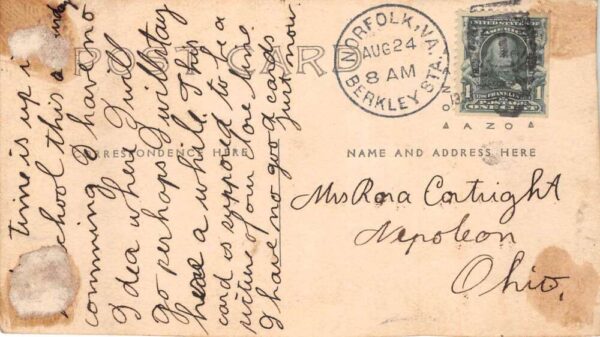 POST CARD
CORRESPONDENCE HERE
NAME AND ADDRESS HERE
NORFOLK, VA.
AUG 24
8 AM
BERKLEY STA.
UNITED STATES OF AMERICA
1 1
POSTAGE
ONE CENT
AZO
time is up i
chool this a
comming I have no
I dea when I will
go perhaps I will stay
here a while. This
card is supposed to be a
picture of our Prone line
I have no good cards
just now
Mrs Rosa Cortright
Napoleon
Ohio.